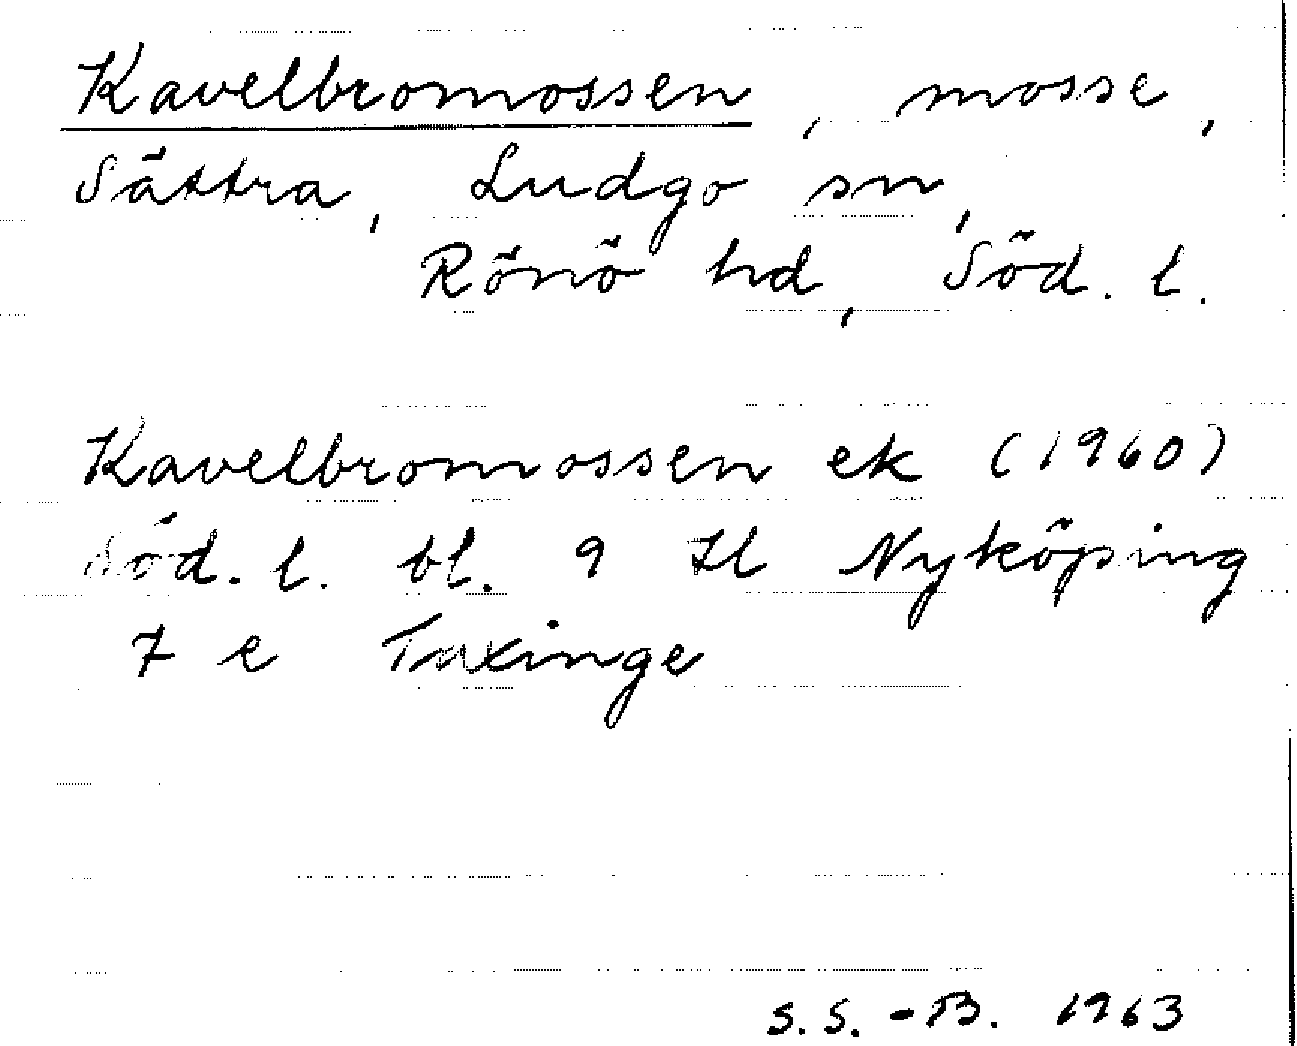 Kavelbromossen, mosse,
Sättra, Ludgo sn,
Rönö hd, Söd. l.
Kavelbromossen ek (1960)
Söd. l. bl. 9 H Nyköping
7 e Taxinge
S. S. - B. 1963